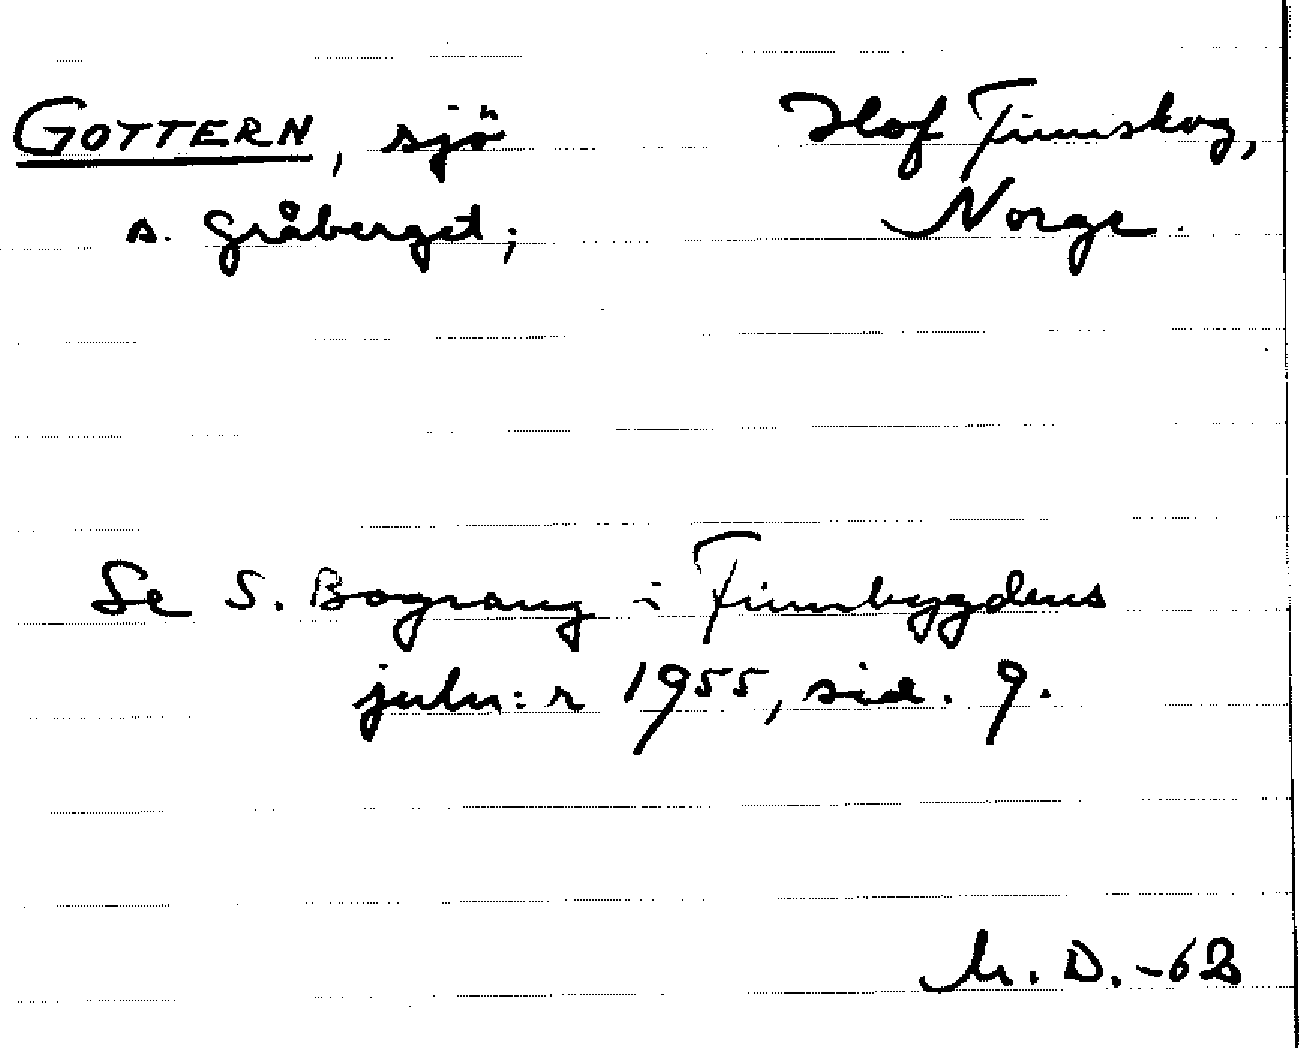 GOTTERN, sjö
s. Gråberget;
Hof Finnskog,
Norge.
Se S. Bograng i Finnbygdens
juln:r 1955, sid. 9.
M. D. -62